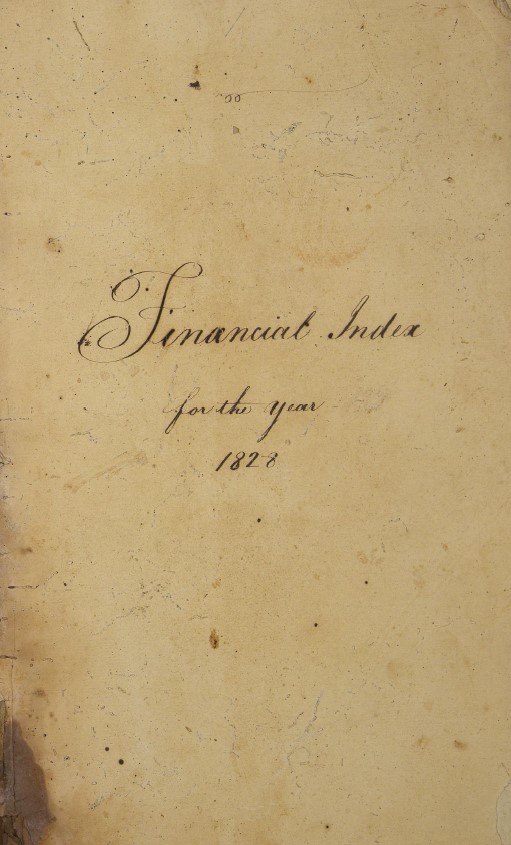 Financial Index
for the year
1828